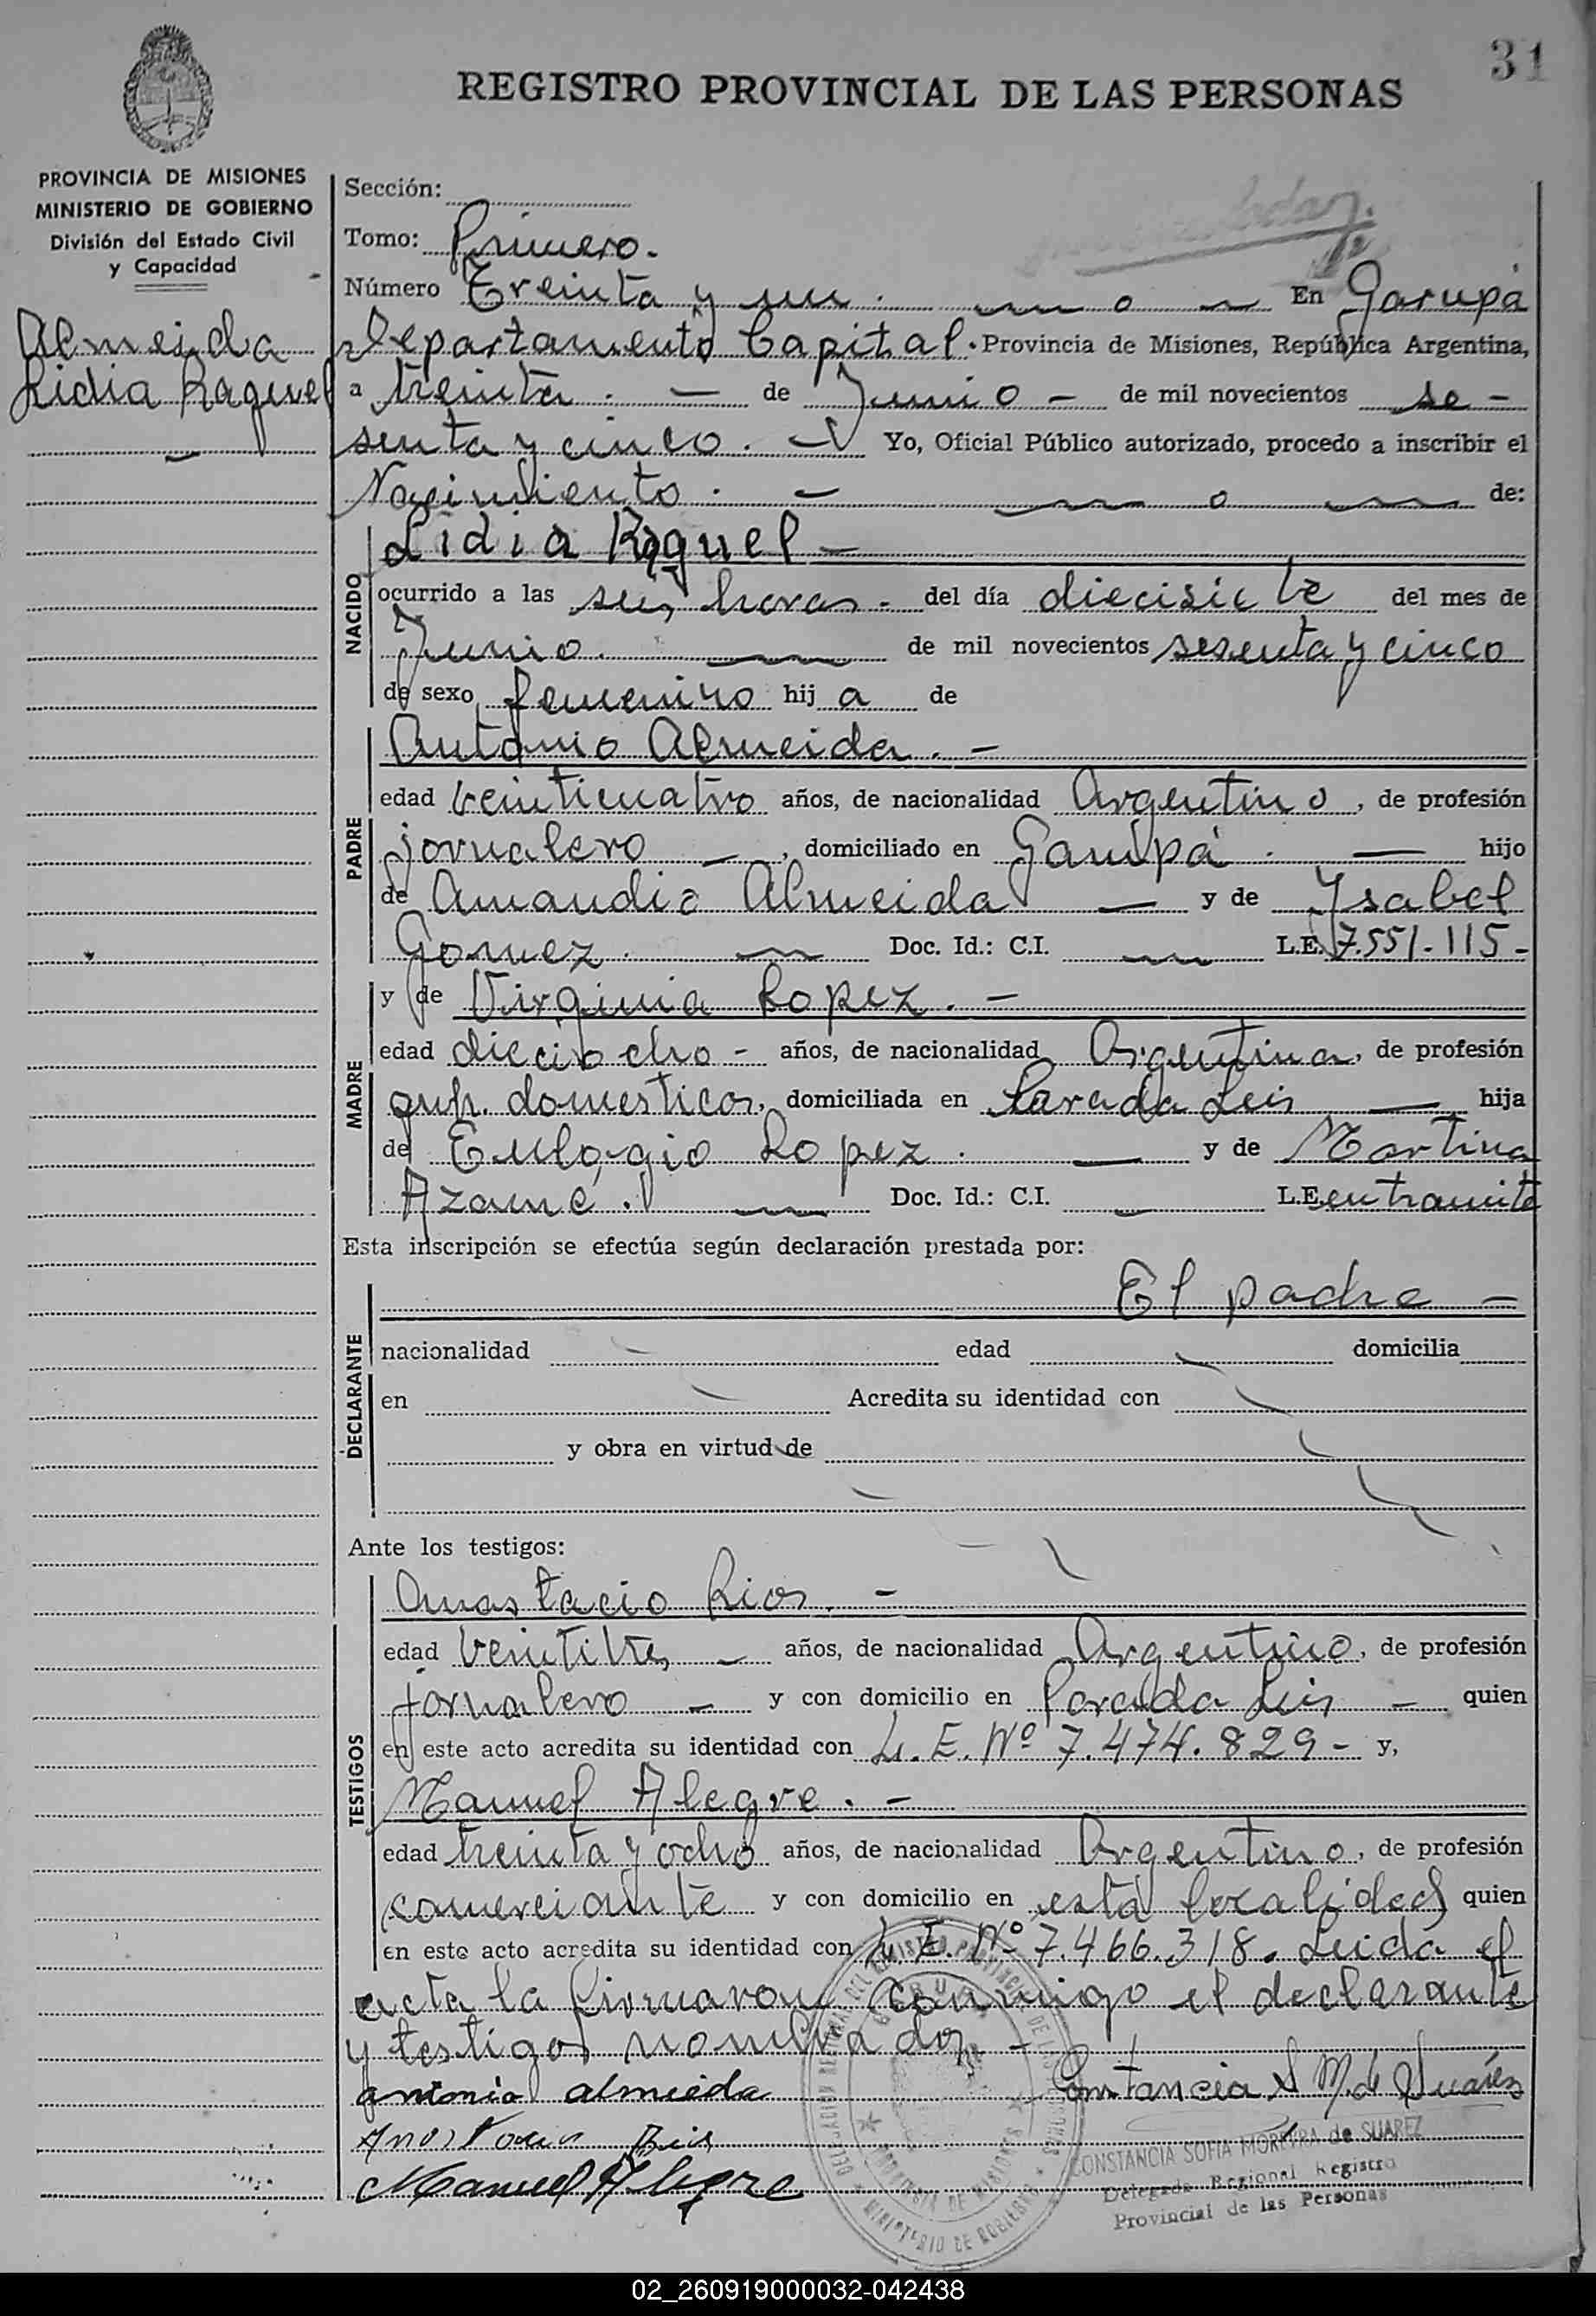 31
REGISTRO PROVINCIAL DE LAS PERSONAS
PROVINCIA DE MISIONES
MINISTERIO DE GOBIERNO
División del Estado Civil
y Capacidad
Almeida
Lidia Raquel
Sección:
Tomo: Primero.
Número Treinta y un. En Garupá
Departamento Capital. Provincia de Misiones, República Argentina,
a treinta. — de Junio — de mil novecientos se -
senta y cinco. — Yo, Oficial Público autorizado, procedo a inscribir el
Nacimiento. — de:
NACIDO
Lidia Raquel —
ocurrido a las seis horas. del día diecisiete del mes de
Junio. — de mil novecientos sesenta y cinco
de sexo femenino hij a de
PADRE
Antonio Almeida. —
edad veinticuatro años, de nacionalidad Argentino, de profesión
jornalero —, domiciliado en Garupá. — hijo
de Amandio Almeida — y de Ysabel
Gomez. — Doc. Id.: C.I. — L.E. 7.551.115-
MADRE
y de Virginia Lopez. —
edad dieciocho - años, de nacionalidad Argentina, de profesión
queh. domesticos, domiciliada en Parada Leis — hija
de Eulogio Lopez. — y de Martina
Azamé. — Doc. Id.: C.I. — L.E. en tramite
Esta inscripción se efectúa según declaración prestada por:
DECLARANTE
El padre —
nacionalidad edad domicilia
en Acredita su identidad con
y obra en virtud de
Ante los testigos:
TESTIGOS
Anastacio Rios. —
edad veintitres — años, de nacionalidad Argentino, de profesión
jornalero — y con domicilio en Parada Leis — quien
en este acto acredita su identidad con L.E. Nº 7.474.829 - y,
Manuel Alegre. —
edad treinta y ocho años, de nacionalidad Argentino, de profesión
comerciante y con domicilio en esta localidad quien
en este acto acredita su identidad con L.E. Nº 7.466.318. Leida el
acta la firmaron conmigo el declarante
y testigos nombrados —
antonio almeida Constancia S M. de Suárez
Rios
Manuel Alegre
CONSTANCIA SOFIA MOREYRA de SUAREZ
Delegada Regional Registro
Provincial de las Personas
02_260919000032-042438